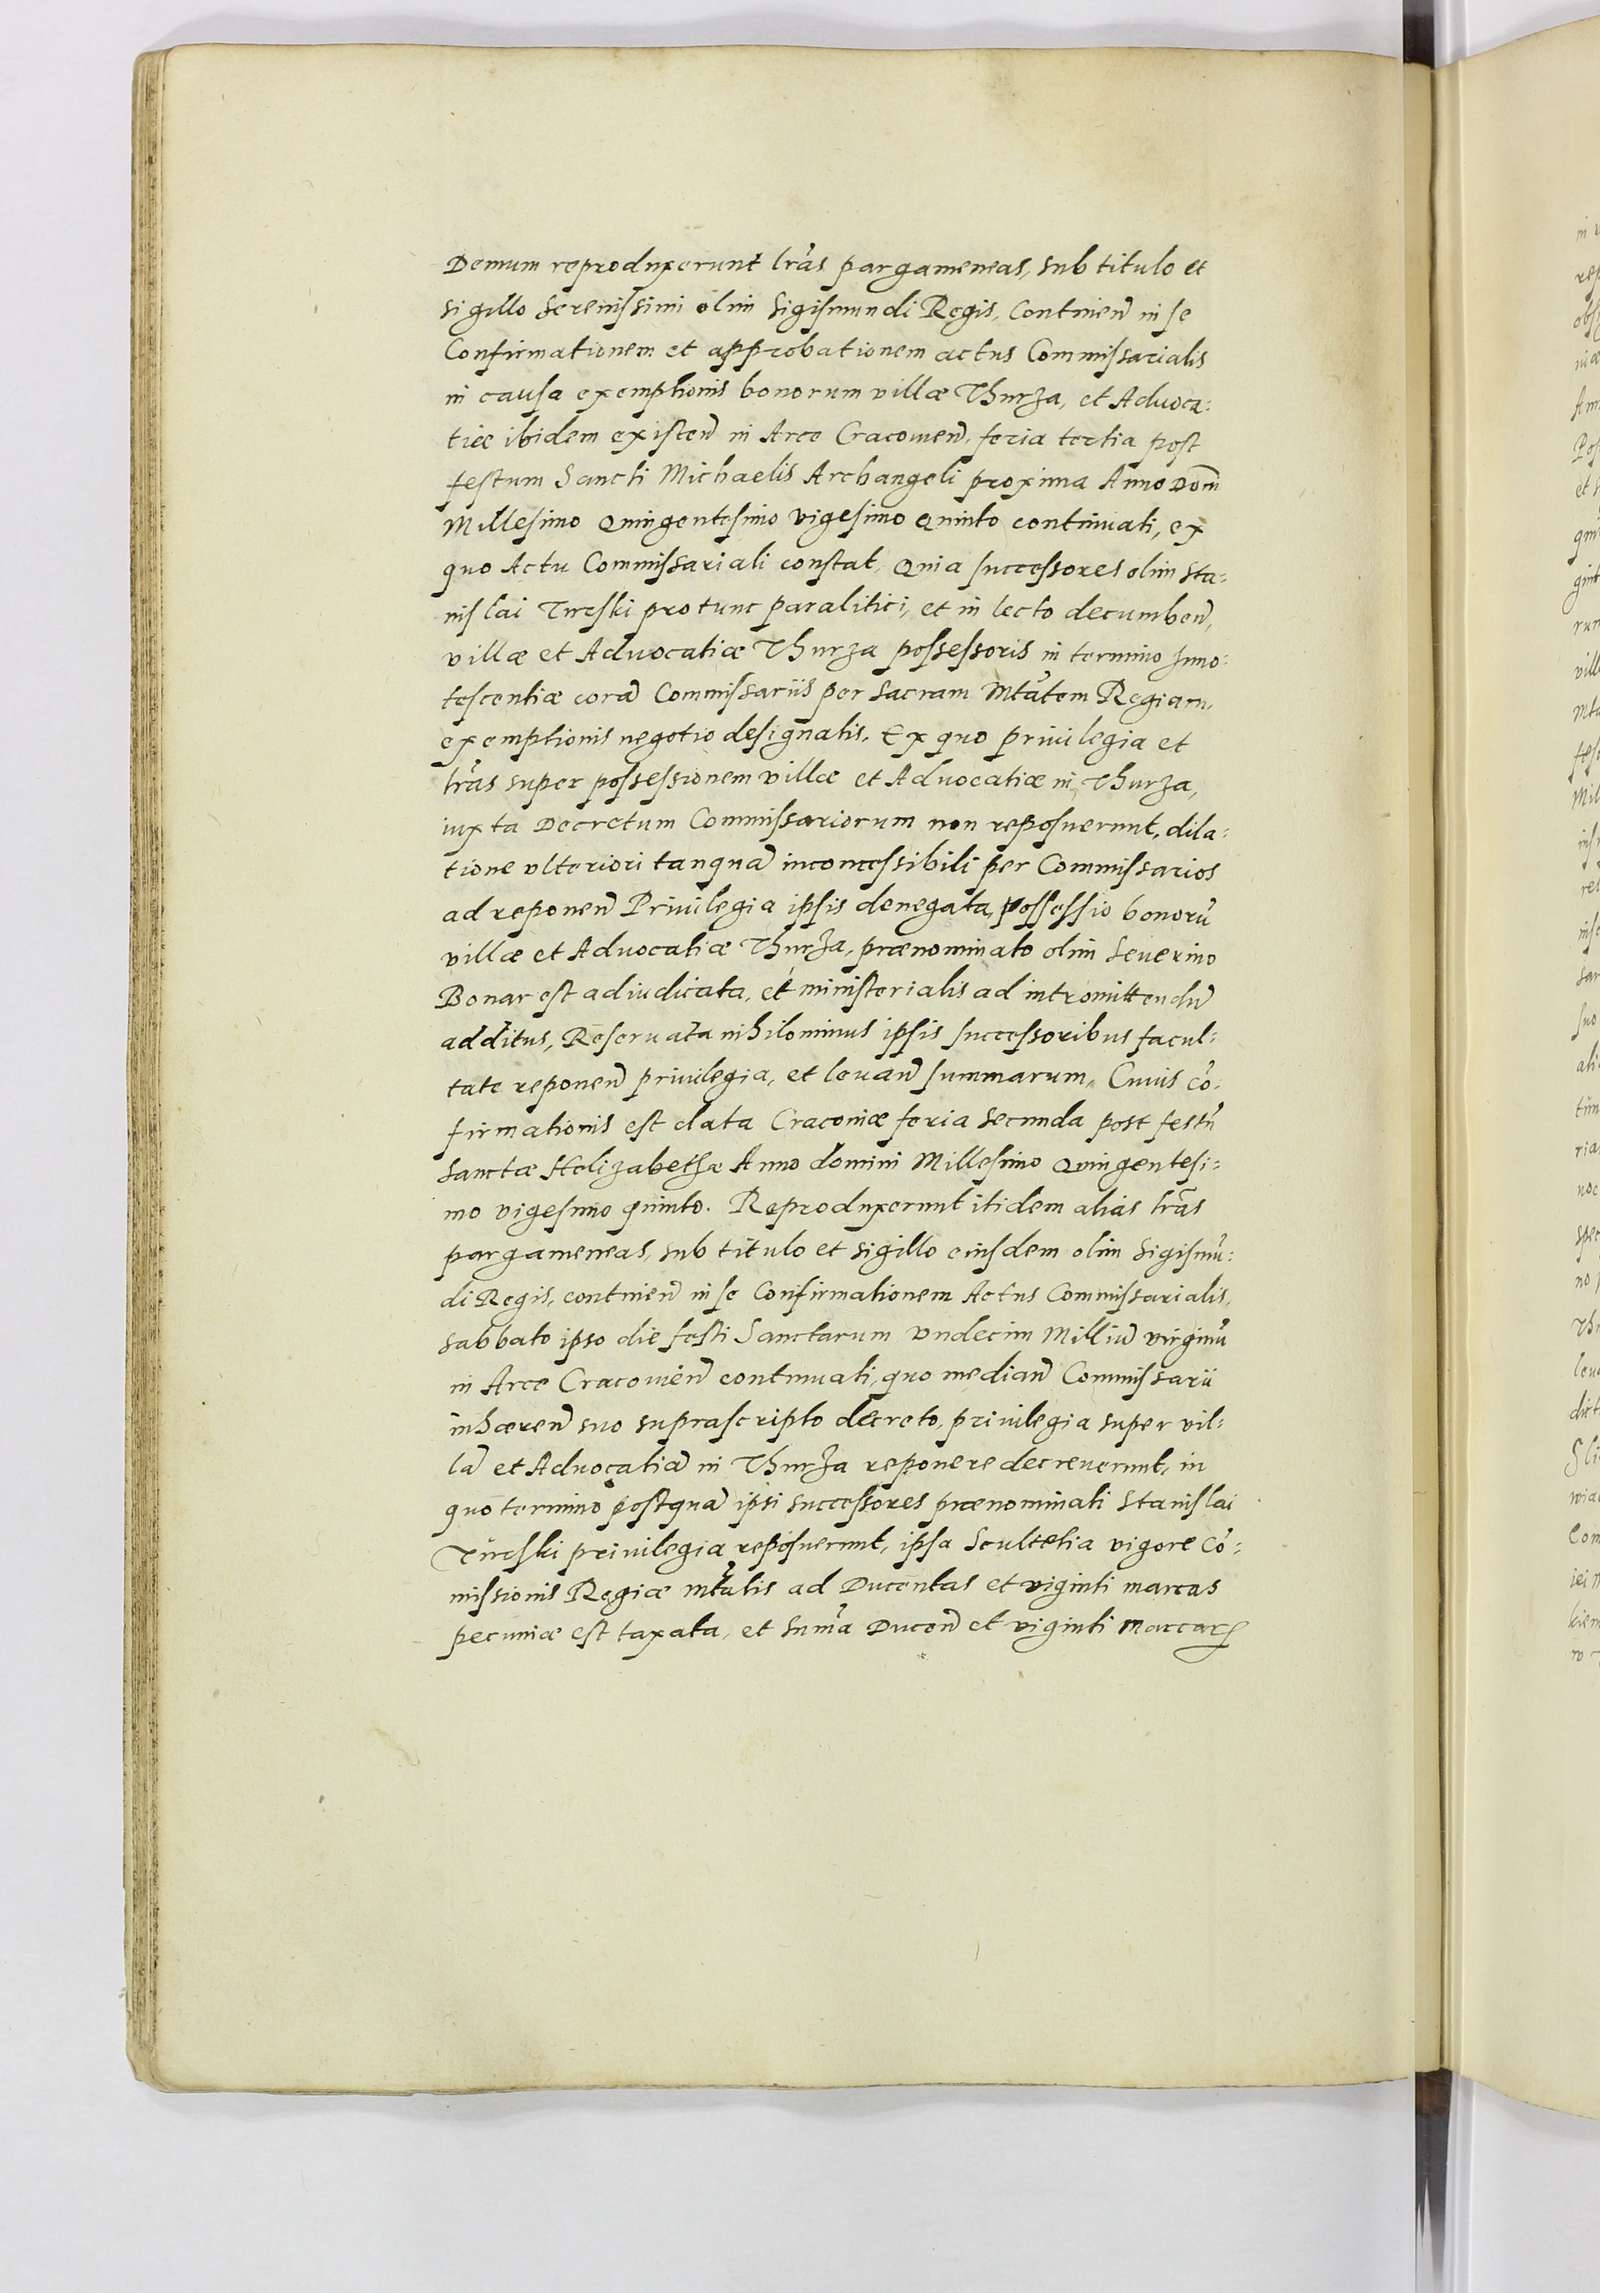 Demum reproduxerunt lrãs pargameneas, sub titulo et
sigillo Serenissimi olim Sigismundi Regis, Continen̄ in se
Confirmationem et approbationem actus Commissarialis
in causa exemptionis bonorum villæ Thurza, et Aduoca:
tiæ ibidem existen̄ in Arce Cracouien̄, feria tertia post
festum Sancti Michaelis Archangeli proxima Anno Dom̄
Millesimo Quingentesimo vigesimo Quinto continuati, ex
quo Actu Commissariali constat, Quia successores olim Sta:
nislai Turski pro tunc paralitici, et in lecto decumben̄,
villæ et Aduocatiæ Thurza possessoris in termino Inno:
tescentiæ corā Commissariis per Sacram Mtãtem Regiam,
exemptionis negotio designatis. Ex quo priuilegia et
lrãs super possessionem villæ et Aduocatiæ in Thurza,
iuxta Decretum Commissariorum non reposuerunt, dila:
tione vlteriori tanquā inconcessibili per Commissarios
ad reponen̄ Priuilegia ipsis denegata, possessio bonorū
villæ et Aduocatiæ Thurza, prænominato olim Seuerino
Bonar est adiudicata, et ministerialis ad intromittendū
additus, Reseruata nihilominus ipsis successoribus facul:
tate reponen̄ priuilegia, et leuan̄ summarum. Cuius cō:
firmationis est data Cracouiæ feria secunda post festū
Sanctæ Helizabethæ Anno domini Millesimo Quingentesi:
mo vigesimo quinto. Reproduxerunt itidem alias lrãs
pargameneas, sub titulo et sigillo eiusdem olim Sigismū:
di Regis, continen̄ in se Confirmationem Actus Commissarialis,
sabbato ipso die festi Sanctarum vndecim Milliū virginū
in Arce Cracouien̄ continuati, quo median̄ Commissarii
inhæren̄ suo suprascripto decreto, priuilegia super vil:
lā et Aduocatiā in Thurza reponere decreuerunt, in
quo termino postquā ipsi successores prænominati Stanislai
Turski priuilegia reposuerunt, ipsa Scultetia vigore Cō:
missionis Regiæ Mtãtis ad Ducentas et viginti marcas
pecuniæ est taxata, et sum̄a Ducen̄ et viginti Marcarꝭ